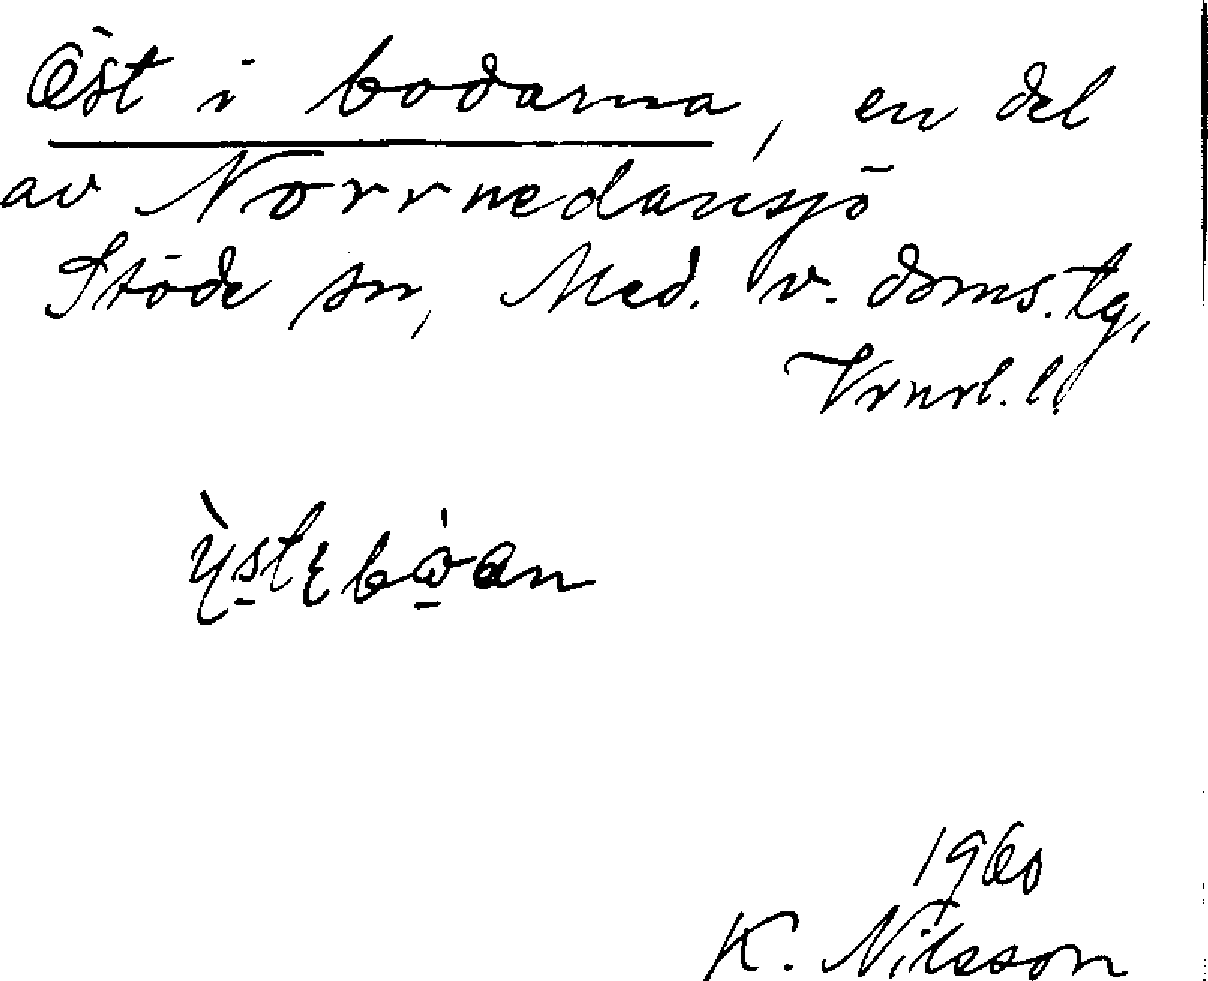 Öst i bodarna, en del
av Norrnedansjö
Stöde sn, Med. v. doms. tg,
Vrnrl. l.
1960
K. Nilsson